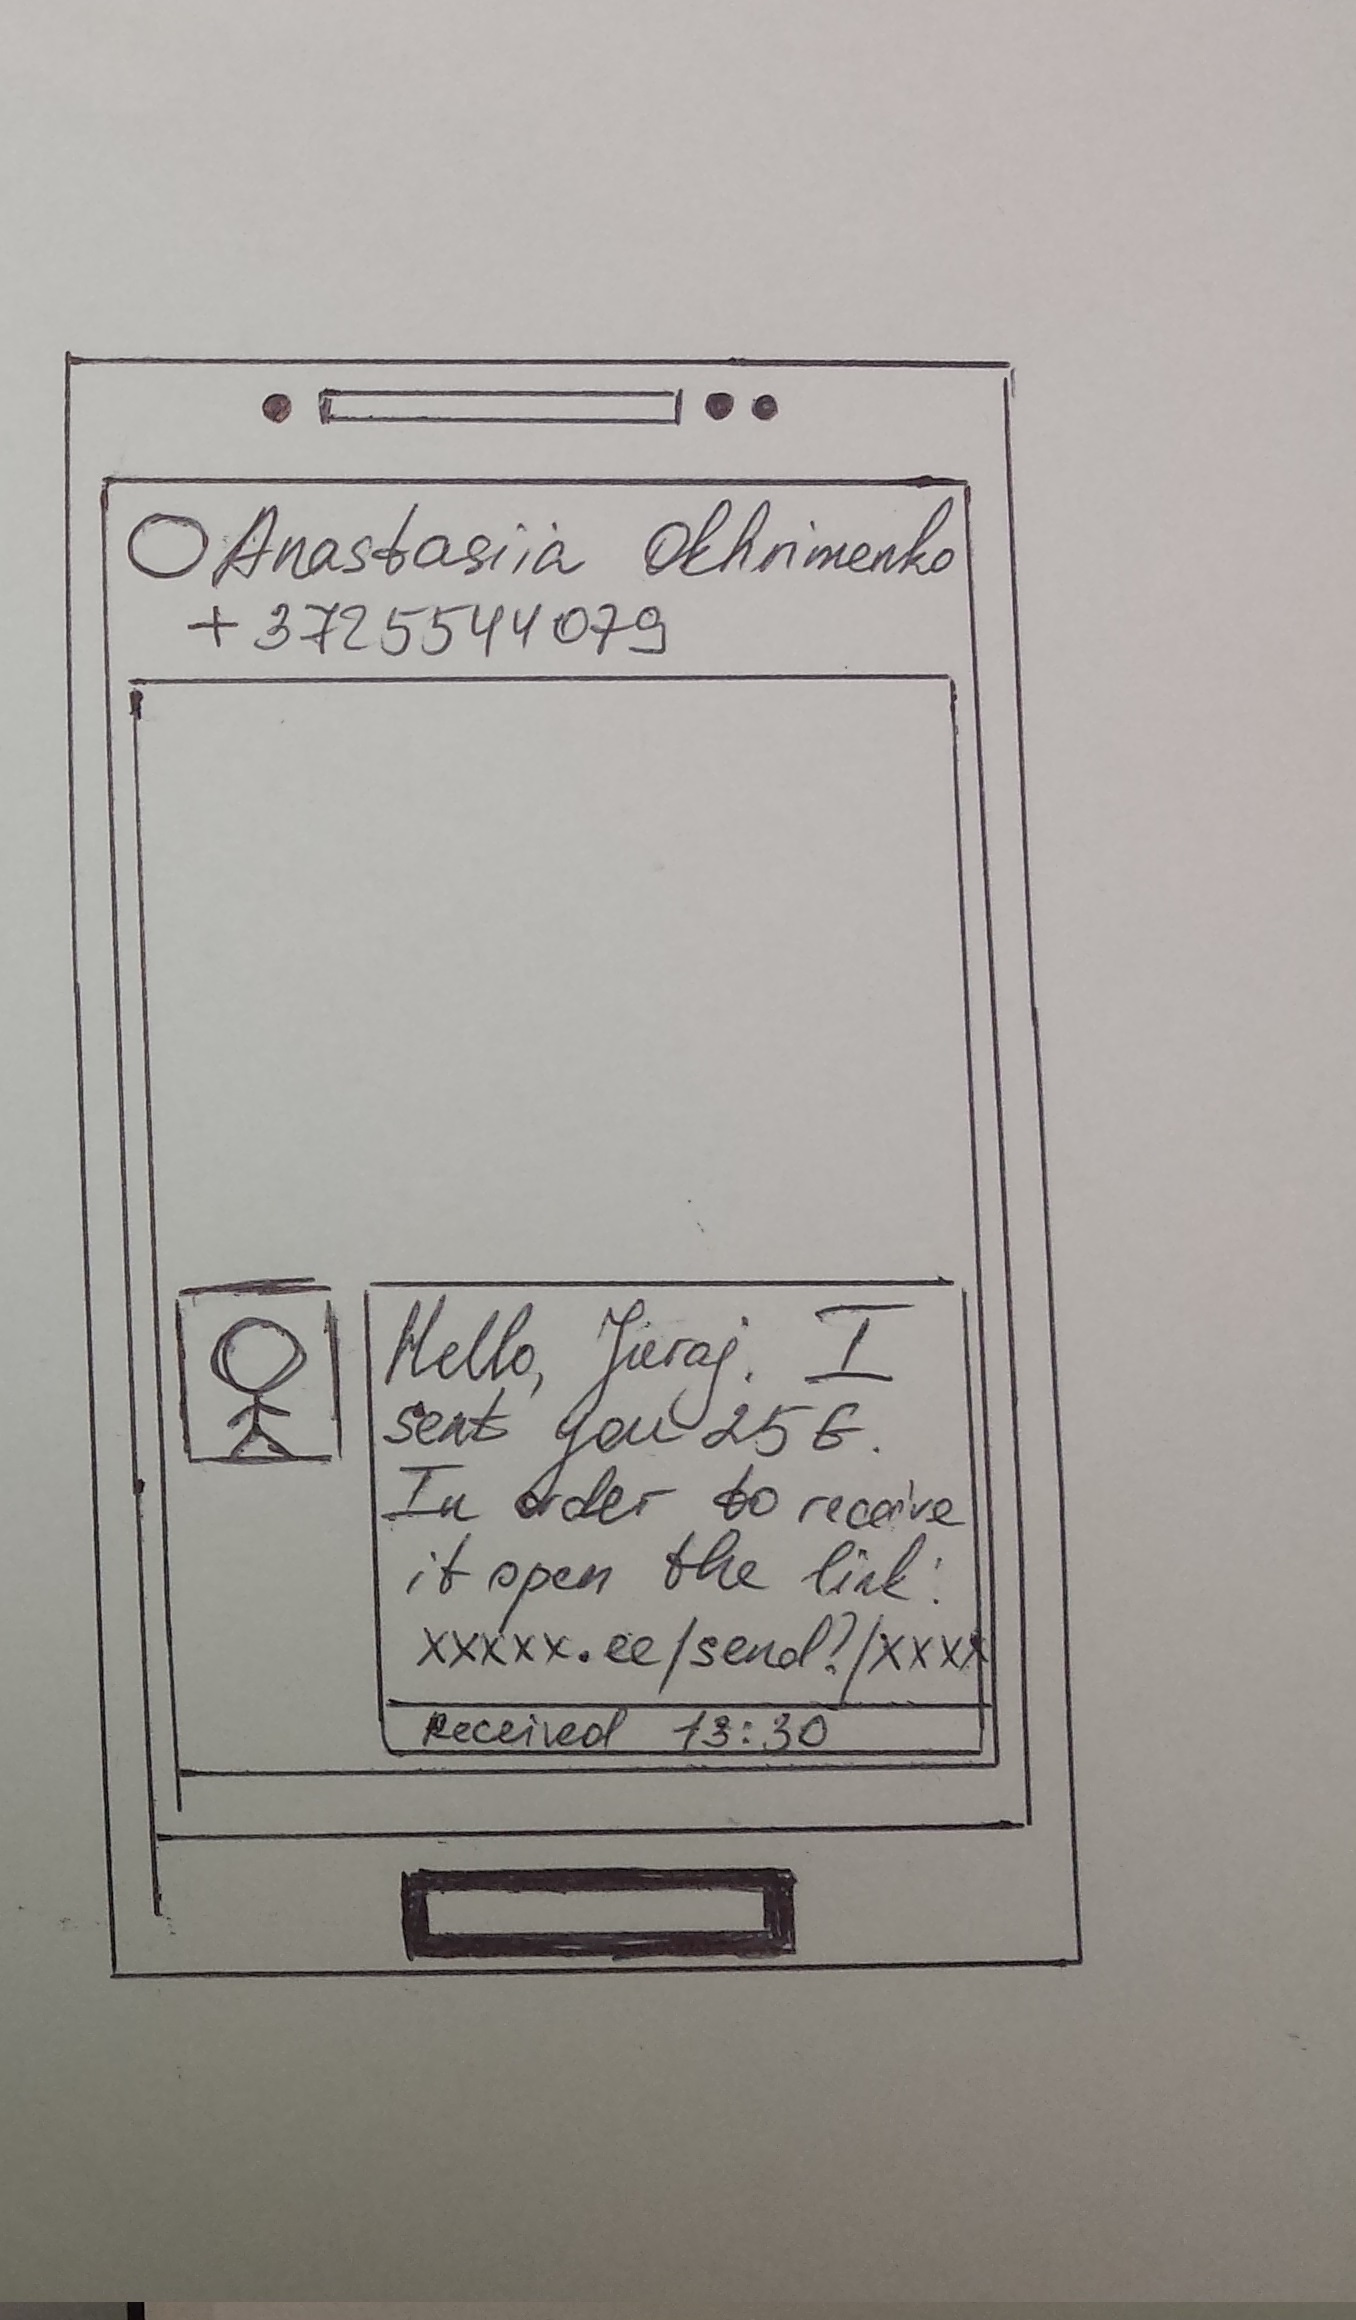 Anastasiia Okhrimenko
+3725544079
Hello, Juraj. I
sent you 25 €.
In order to receive
it open the link:
xxxxx.ee/send?/xxxx
Received 13:30